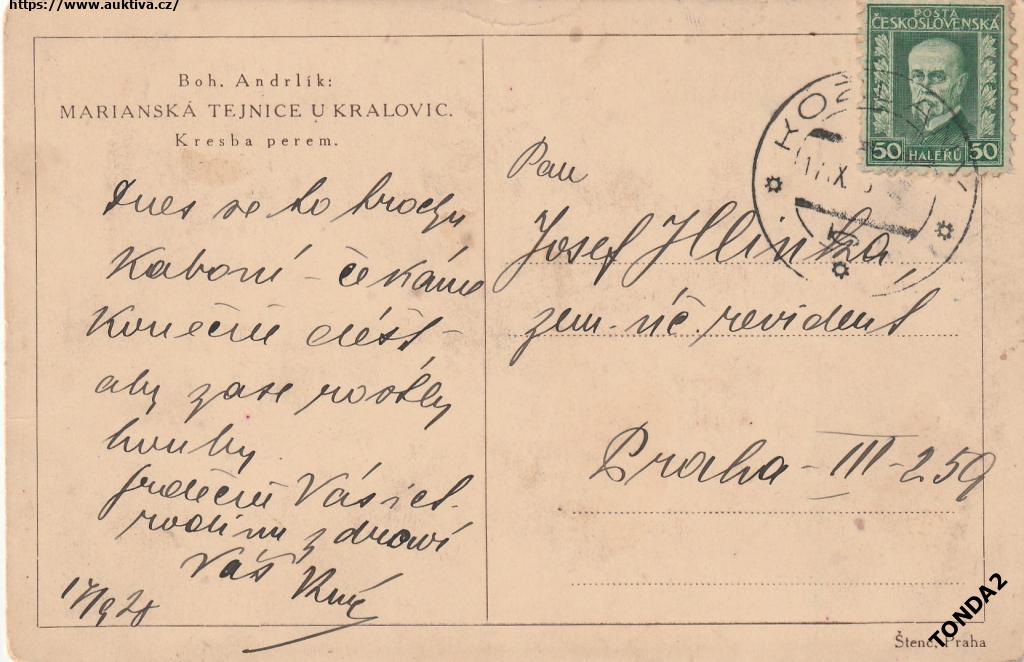 https://www.auktiva.cz/
Boh. Andrlík:
MARIANSKÁ TEJNICE U KRALOVIC.
Kresba perem.
Dnes se to trochu
kaboní – čekáme
konečně déšť,
aby zase rostly
houby.
Srdečně Vás i ct.
rodinu zdraví
Váš
17/9 28
POSTA
ČESKOSLOVENSKÁ
50 HALÉŘŮ 50
Pan
Josef Hlinka,
zem. úč. revident
Praha – III – 259
Štenc, Praha
TONDA2